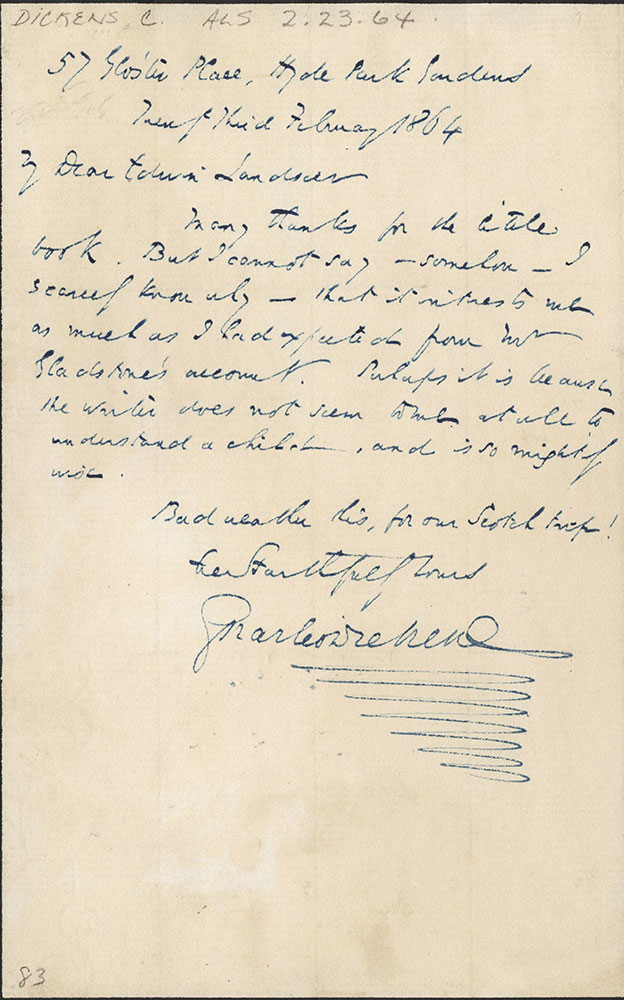 DICKENS, C. ALS 2.23.64.
57 Gloster Place, Hyde Park Gardens
Twenty Third February 1864
My Dear Edwin Landseer
Many thanks for the little
book. But I cannot say – somehow – I
scarcely know why – that it interests me
as much as I had expected from Mr
Gladstone's account. Perhaps it is because
the writer does not seem to me at all to
understand a child, and is so mighty
wise.
Bad weather this, for our Scotch !
Ever Faithfully Yours
Charles Dickens
83